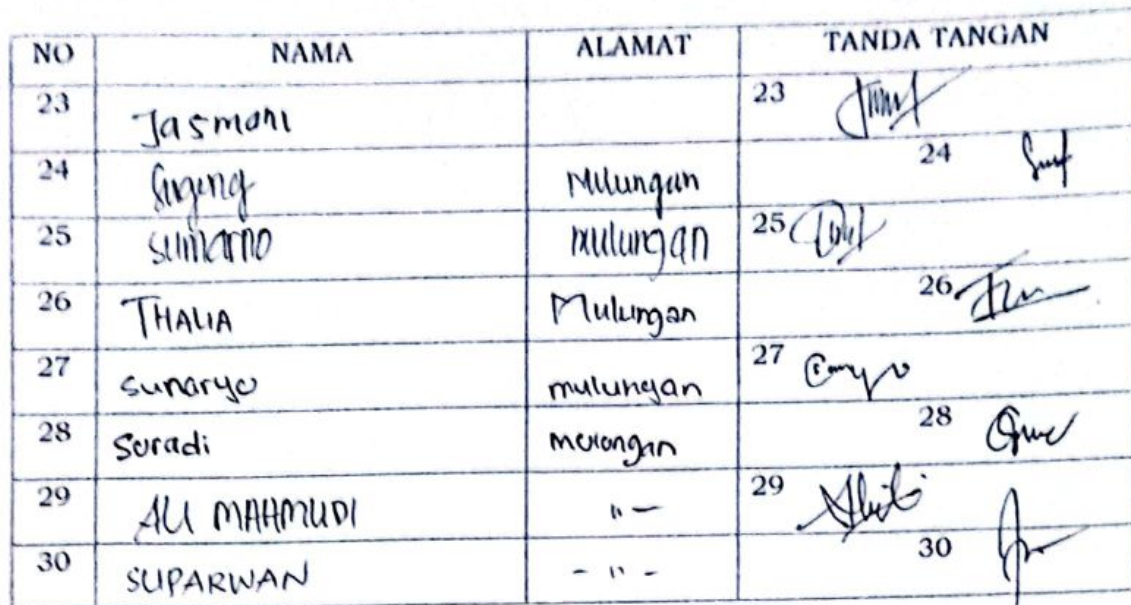 NO NAMA ALAMAT TANDA TANGAN
23 Jasmani 23
24 Sugeng Mulungan 24
25 Sumarno mulungan 25
26 THALIA Mulungan 26
27 sunaryo mulungan 27
28 Suradi mulongan 28
29 ALI MAHMUDI " - 29
30 SUPARWAN - " - 30